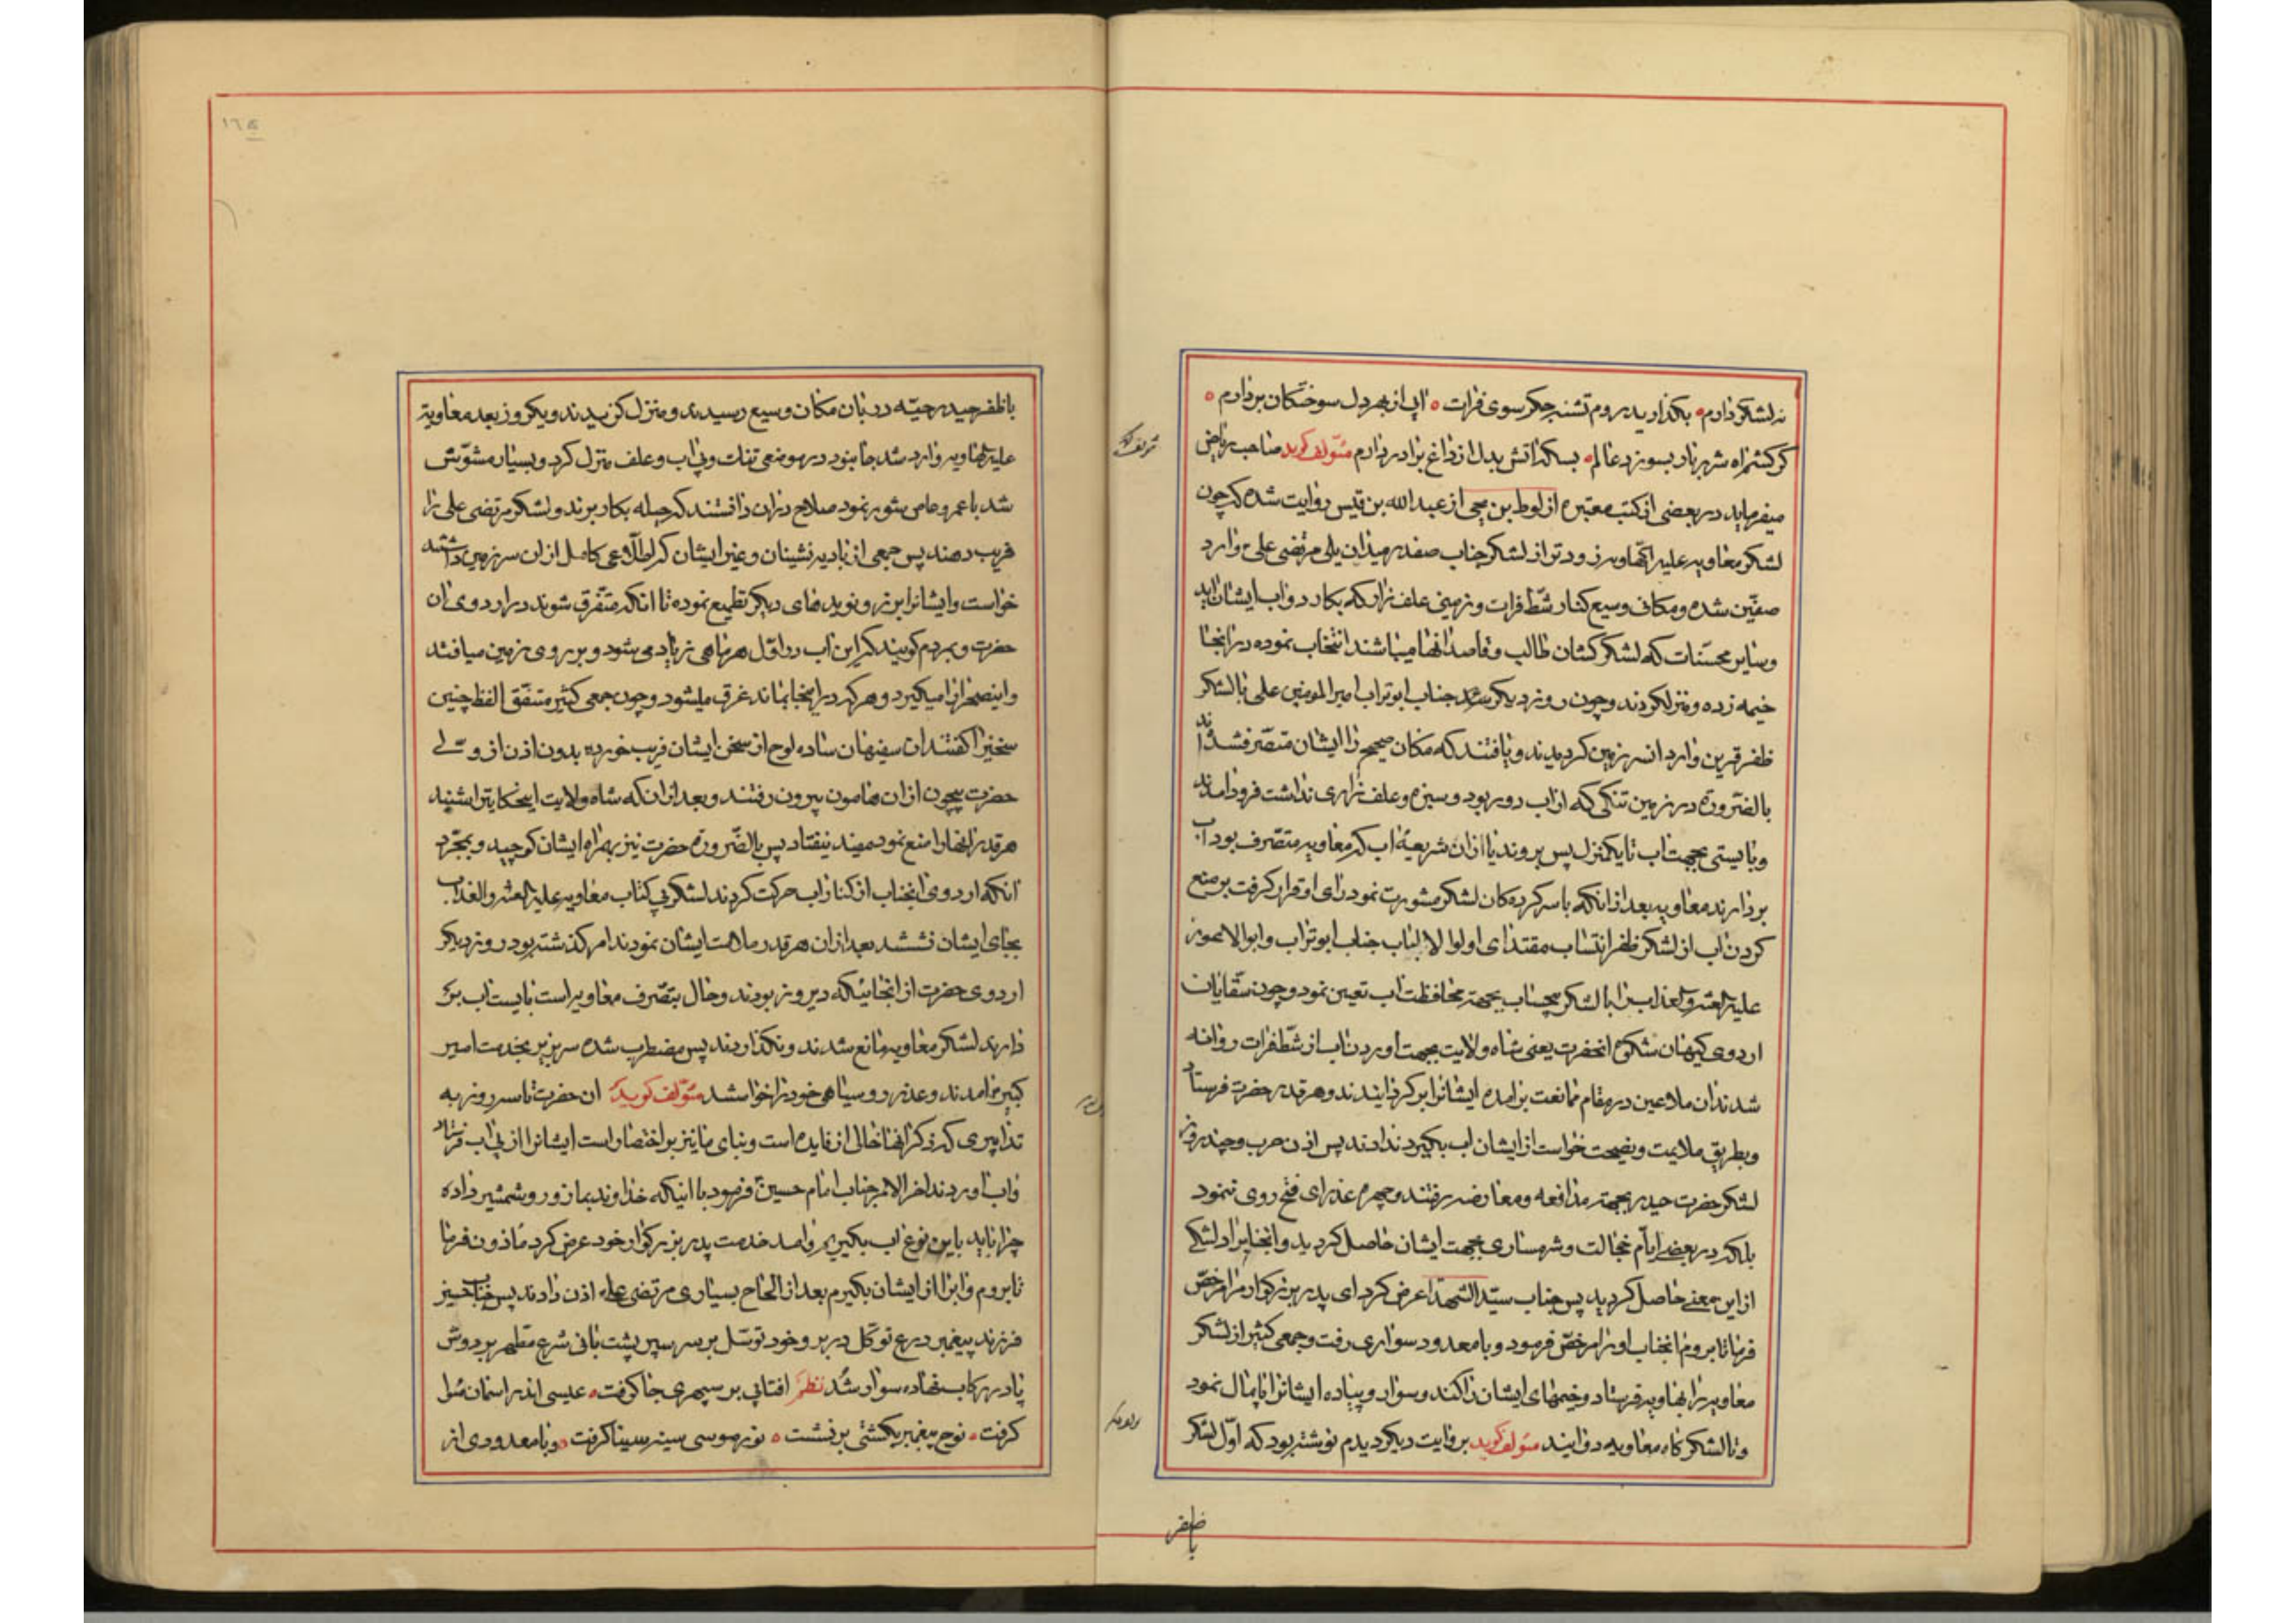 نه لشکر دارم ه بگذارید روم تشنه جگر سوی فرات ه اب از بهر دل سوختگان بردارم ه
گر کشم اه شرر بار بسوزد عالم ه بسکه اتش بدل از داغ برادر دارم مؤلف گوید صاحب ریاض
میفرماید در بعضی از کتب معتبره از لوط بن یحیی از عبدالله بن قیس روایت شده که چون
لشکر معاویه علیه الهاویه زودتر از لشکر جناب صفدر میدان یلی مرتضی علی ع وارد
صفین شده و مکانی وسیع کنار شط فرات و زمینی علف زار که بکار دواب ایشان اید
و سایر محسنات که لشکر کشان طالب و قاصد انها میباشند انتخاب نموده در انجا
خیمه زده و منزل کردند و چون روز دیگر شد جناب ابو تراب امیر المومنین علی با لشکر
ظفر قرین وارد انسرزمین کردیدند و یافتند که مکان صحیح را ایشان متصرفشده اند
بالضروره در زمین تنگی که از اب دور بود و سبزه و علف زاری نداشت فرود امدند
و بایستی بجهت اب تا یکمنزل پس بروند یا از ان شریعهٔ اب که معاویه متصرف بود اب
بردارند معاویه بعد از انکه با سرکرده کان لشکر مشورت نمود رای او قرار گرفت بر منع
کردن اب از لشکر ظفر انتساب مقتدای اولوا الالباب جناب ابو تراب و ابو الاعور
علیه العنه والعذاب را با لشکر بیحساب بجهته محافظت اب تعیین نمود و چون سقایان
اردوی کیهان شکوه انحضرت یعنی شاه ولایت بجهت اوردن اب از شط فرات روانه
شدند ان ملاعین در مقام ممانعت برامده ایشانرا بر گردانیدند و هر قدر حضرت فرستاد
و بطریق ملایمت و نصیحت خواست از ایشان اب بگیرد ندادند پس اذن حرب و چند روز
لشکر حضرت حیدر بجهته مدافعه و معارضه رفتند و چهره عذرای فتح روی ننمود
بلکه در بعضی ایام خجالت و شرمساری بجهت ایشان حاصل کردید و انجنابرا دلتنگی
از این معنی حاصل کردید پس جناب سید الشهدا عرض کرد ای پدر بزرگوار مرا مرخص
فرما تا بروم انجناب او را مرخص فرمود و با معدود سواری رفت و جمعی کثیر از لشکر
معاویه را بهاویه فرستاد و خیمهای ایشان را کند و سوار و پیاده ایشانرا پامال نمود
و تا لشکر گاه معاویه دوانید مؤلف گوید بروایت دیگر دیدم نوشته بود که اول لشکر
با ظفر
با ظفر حیدر حیه در بان مکان وسیع رسیدند و منزل گزیدند و یکروز بعد معاویة
علیه الهاویه وارد شد جا نبود در موضعی تنک و بی اب و علف منزل کرد و بسیار مشوش
شد با عمرو عاص شور نمود صلاح در ان دانستند که حیله بکار برند و لشکر مرتضی علی را
فریب دهند پس جمعی از بادیه نشینان و غیر ایشان که اطلاعی کامل از ان سرزمین داشتند
خواست و ایشانرا بزر و نوید های دیگر تطمیع نموده تا انکه متفرق شوند در اردوی ان
حضرت و بمردم گویند که این اب در اول هر ماهی زیاد می شود و بر روی زمین میافتد
و اینصحرا را میگیرد و هر که در اینجا بماند غرق میشود و چون جمعی کثیر متفق الفظ چنین
سخنیرا گفتند ان سفیهان ساده لوح از سخن ایشان فریب خورده بدون اذن از ولی
حضرت بیچون از ان هامون بیرون رفتند و بعد از ان که شاه ولایت اینحکایترا شنید
هر قدر انها را منع نمود مفید نیفتاد پس بالضروره حضرت نیز بهمراه ایشان کوچید و بمجرد
انکه اردوی انجناب از کنار اب حرکت کردند لشکر بی کتاب معاویه علیه العنه والعذاب
بجای ایشان نشستند بعد از ان هر قدر ملامت ایشان نمودند امر گذشته بود روز دیگر
اردوی حضرت از انجائیکه دیروز بودند و حال بتصرف معاویه است بایست اب بر
دارند لشکر معاویه مانع شدند و نگذاردند پس مضطرب شده سر بزیر بخدمت امیر
کبیر امدند و عذر رو سیاهی خود را خواستند مؤلف گوید ان حضرت تا سه روز به
تدابیری که ذکر انها خالی از فایده است و بنای ما نیز بر اختصار است ایشانرا از پی اب فرستاد
و اب اوردند اخر الامر جناب امام حسین ع فرمود با اینکه خداوند بما زور و شمشیر داده
چرا باید باین نوع اب بگیریم و امد خدمت پدر بزرگوار خود عرض کرد ماذون فرما
تا بروم و اب را از ایشان بگیرم بعد از الحاح بسیاری مرتضی علی اذن دادند پس جناب حسین
فرزند پیغمبر درع توکل در بر و خود توسل بر سر سپر پشت بانی شرع مطهر بر دوش
پا در رکاب نهاده سوار شد نظم افتابی بر سپهری جا گرفت ه عیسی اندر اسمان ماوا
گرفت ه نوح پیغمبر بکشتی بر نشست ه نور موسی سینه سینا گرفت ه و با معدودی از